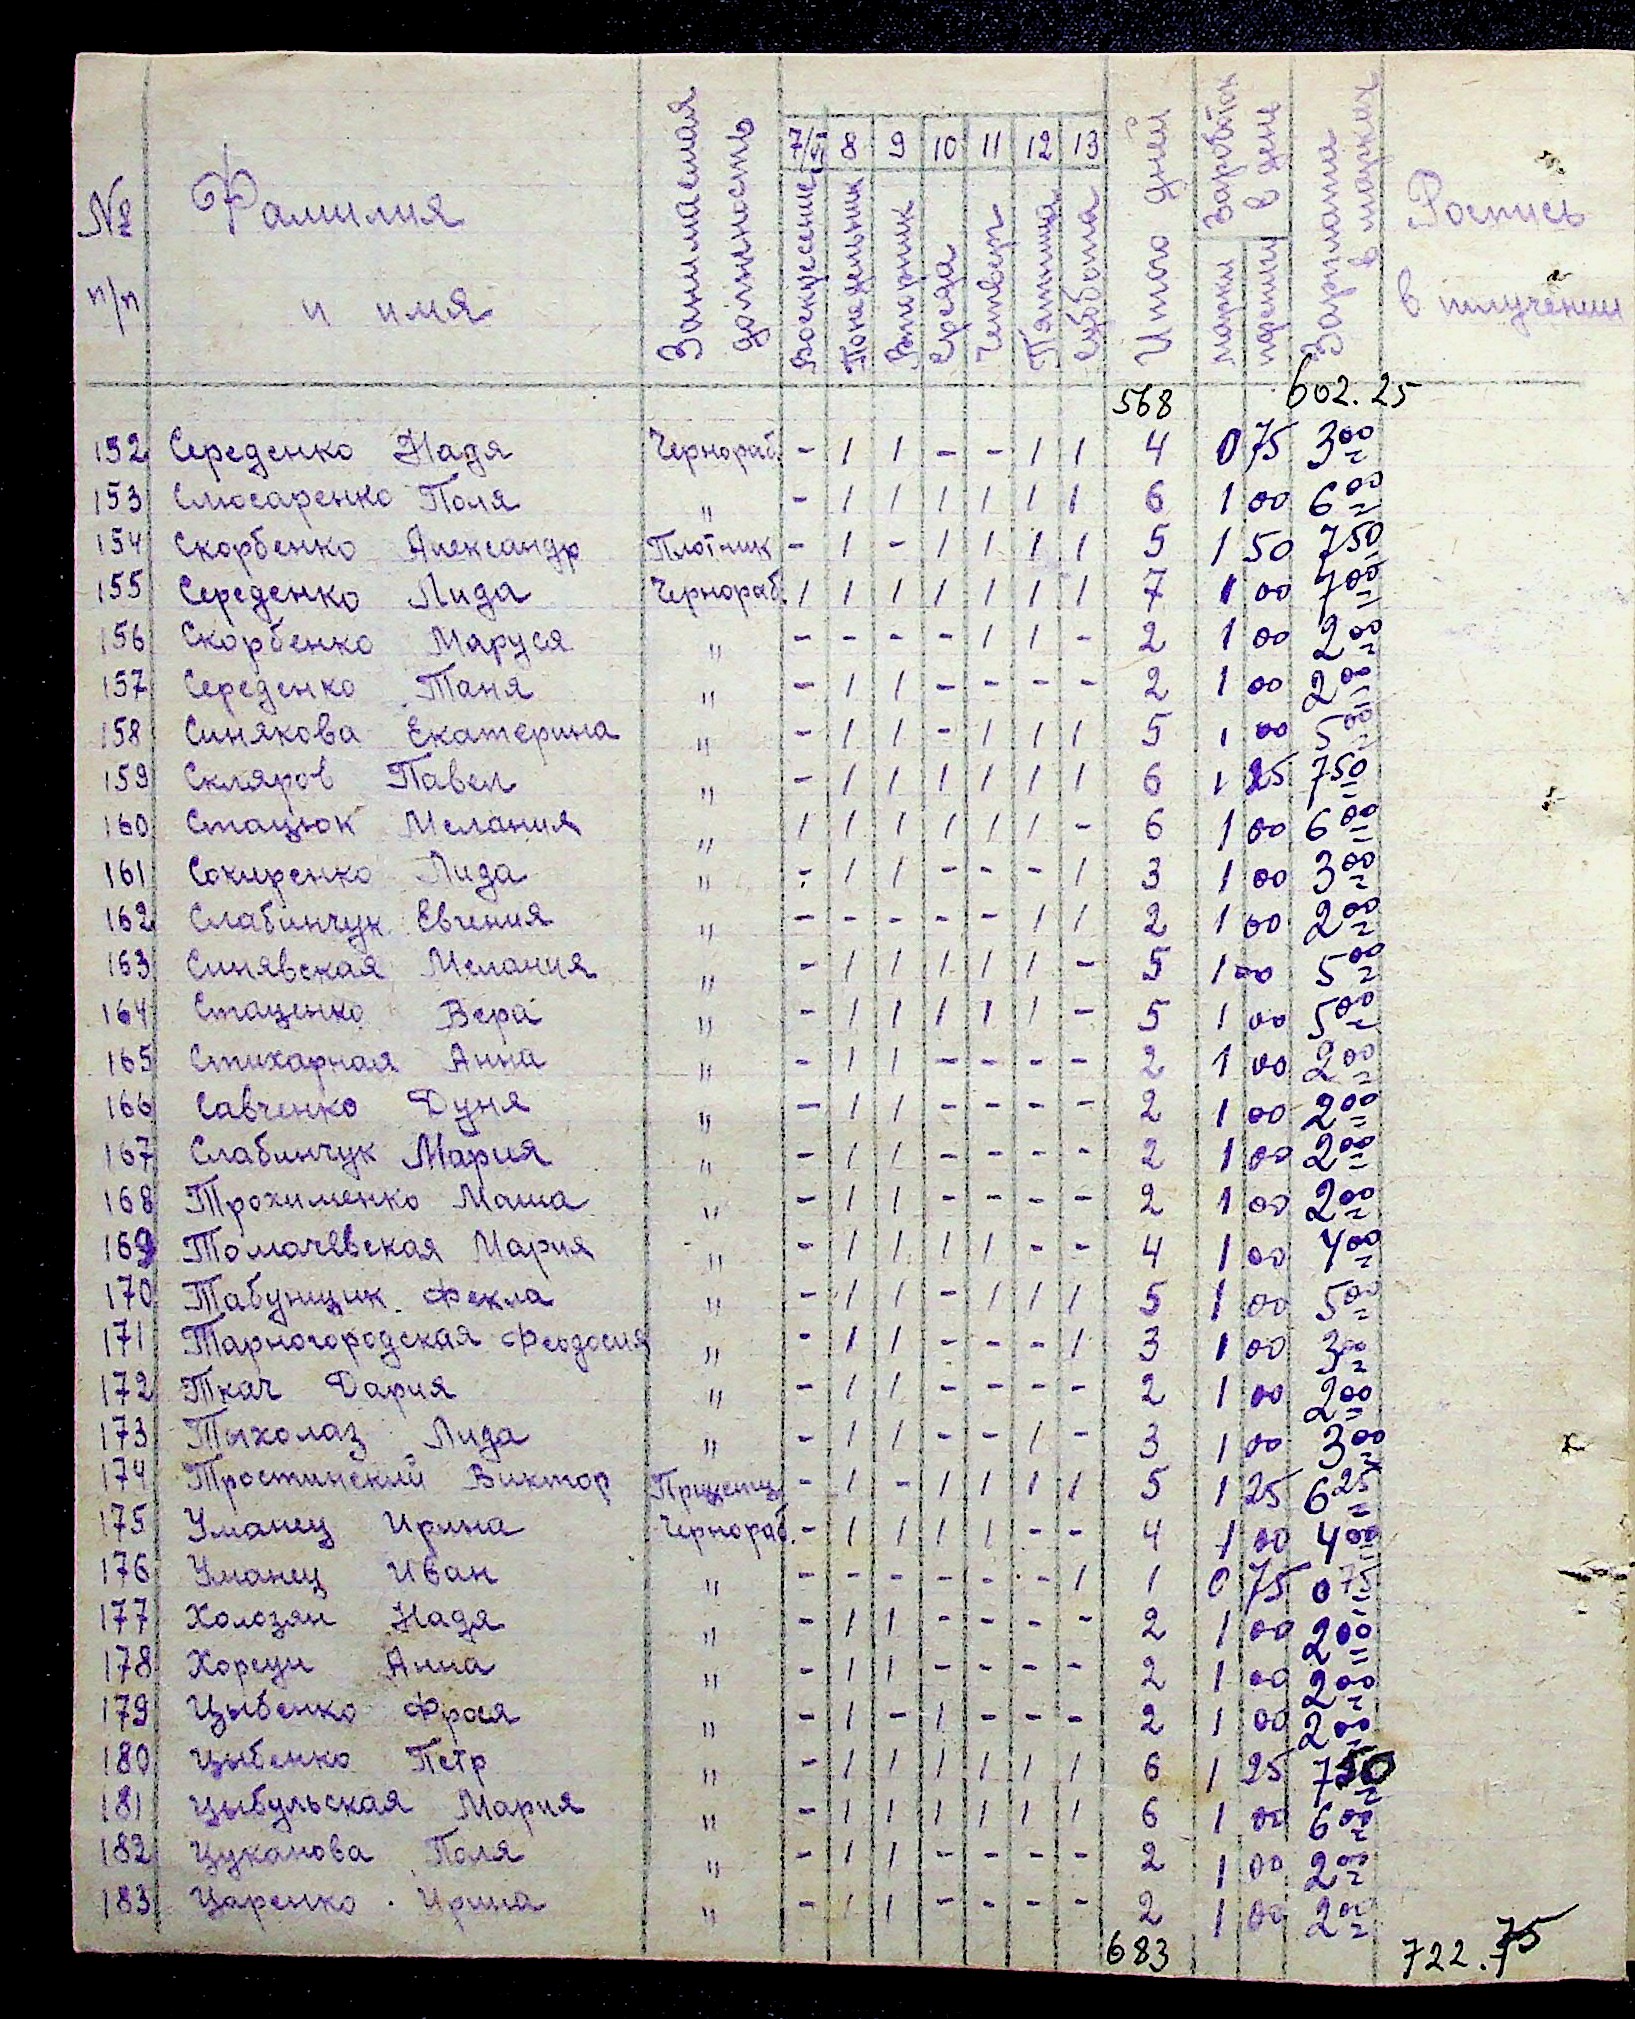 № п/п Фамилия и имя Занимаемая должность 7/VI 8 9 10 11 12 13 Итого дней Заработок в день Зарплата в марках Роспись в получении
Воскресение Понедельник Вторник Среда Четверг Пятница Суббота марки пфениги
568 602.25
152 Середенко Надя Чернораб. - 1 1 - - 1 1 4 0 75 3 00
153 Слюсаренко Поля " - 1 1 1 1 1 1 6 1 00 6 00
154 Скорбенко Александр Плотник - 1 - 1 1 1 1 5 1 50 7 50
155 Середенко Лида Чернораб. 1 1 1 1 1 1 1 7 1 00 7 00
156 Скорбенко Маруся " - - - - 1 1 - 2 1 00 2 00
157 Середенко Таня " - 1 1 - - - - 2 1 00 2 00
158 Синякова Екатерина " - 1 1 - 1 1 1 5 1 00 5 00
159 Скляров Павел " - 1 1 1 1 1 1 6 1 25 7 50
160 Стацюк Мелания " 1 1 1 1 1 1 - 6 1 00 6 00
161 Сокиренко Лида " - 1 1 - - - 1 3 1 00 3 00
162 Слабинчук Евгения " - - - - - 1 1 2 1 00 2 00
163 Синявская Мелания " - 1 1 1 1 1 - 5 1 00 5 00
164 Стаценко Вера " - 1 1 1 1 1 - 5 1 00 5 00
165 Стихарная Анна " - 1 1 - - - - 2 1 00 2 00
166 Савченко Дуня " - 1 1 - - - - 2 1 00 2 00
167 Слабинчук Мария " - 1 1 - - - - 2 1 00 2 00
168 Трохименко Маша " - 1 1 - - - - 2 1 00 2 00
169 Томачевская Мария " - 1 1 1 1 - - 4 1 00 4 00
170 Табунщик Фекла " - 1 1 - 1 1 1 5 1 00 5 00
171 Тарногородская Феодосия " - 1 1 - - - 1 3 1 00 3 00
172 Ткач Дария " - 1 1 - - - - 2 1 00 2 00
173 Тыхолаз Лида " - 1 1 - - 1 - 3 1 00 3 00
174 Тростинский Виктор - 1 - 1 1 1 1 5 1 25 6 25
175 Уманец Ирина Чернораб. - 1 1 1 1 - - 4 1 00 4 00
176 Уманец Иван " - - - - - - 1 1 0 75 0 75
177 Холозян Надя " - 1 1 - - - - 2 1 00 2 00
178 Анна " - 1 1 - - - - 2 1 00 2 00
179 Цыбенко Фрося " - 1 - 1 - - - 2 1 00 2 00
180 Цыбенко Петр " - 1 1 1 1 1 1 6 1 25 7 50
181 Цыбульская Мария " - 1 1 1 1 1 1 6 1 00 6 00
182 Цуканова Поля " - 1 1 - - - - 2 1 00 2 00
183 Царенко Ирина " - 1 1 - - - - 2 1 00 2 00
683 722.75